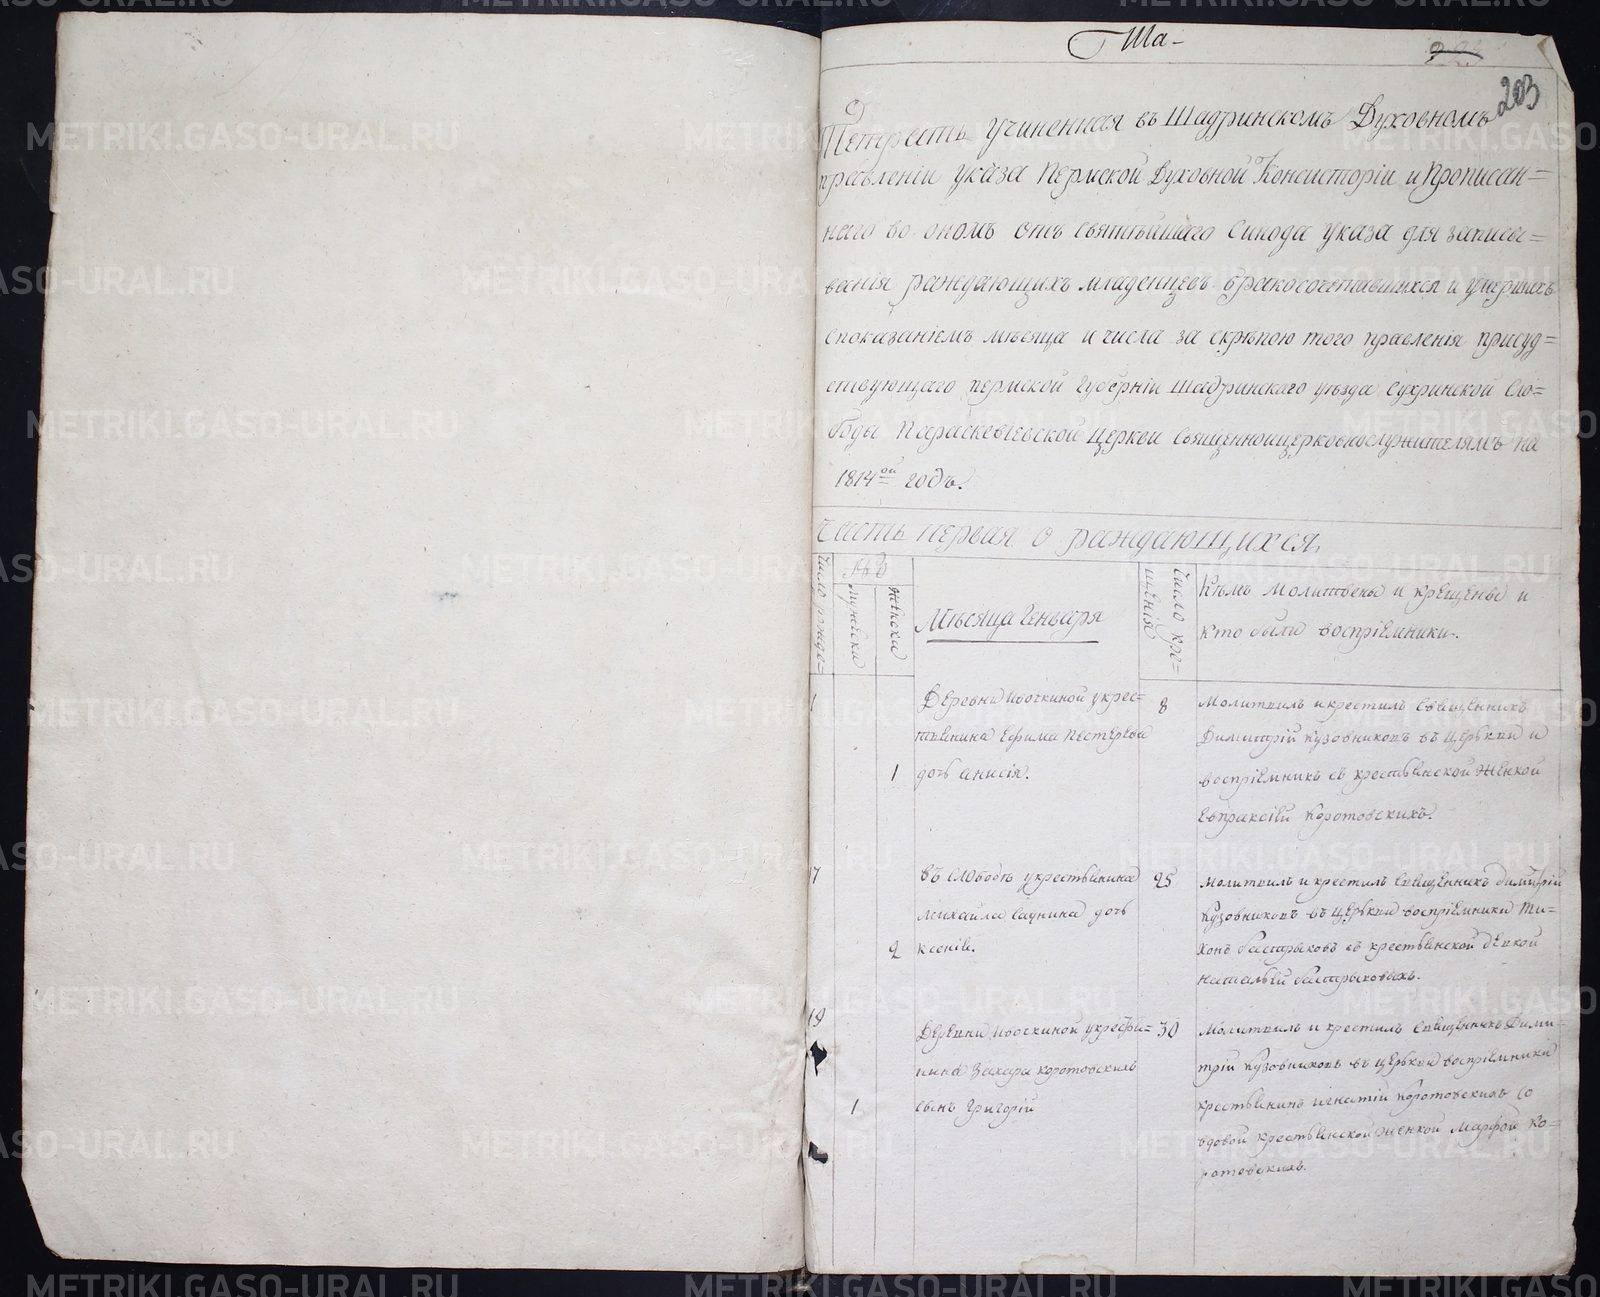 Ша-
203
Тетрать учиненная въ Шадринскомъ Духовномъ
правленіи указа Пермской Духовной Консисторіи и прописан=
наго во ономъ отъ Святѣйшаго Синода указа для записы=
ванія раждающихъ младенцевъ бракосочетавшихся и умершихъ
споказаніемъ мѣсяца и числа за скрѣпою того правленія присуд=
ствующаго Пермской Губерніи Шадринскаго уѣзда Сухринской Сло=
боды Параскевіевской Церкви священноицерковнослужителямъ на
1814ой годъ.
Часть первая о раждающихся.
Число рожде=
мужеска
женска
Мѣсяца Генваря
Число кре=
щенія
Кѣмъ молитвены и крещены и
кто были воспріемники.
1
1
Деревни Ивочкиной у крес=
тьянина Ефима Пестерева
дочь Анисія.
8
Молитвилъ и крестилъ священникъ
Димитрій Кузовниковъ въ церькви и
воспріемникъ съ крестьянской женкой
Евпраксіей Коротовскихъ.
17
2
Въ слободѣ у крестьянина
Михайла Саунина дочь
Ксенія.
25
Молитвилъ и крестилъ священникъ Димитрій
Кузовниковъ въ церькви воспріемники Ти=
хонъ Бастрыковъ съ крестьянской девкой
Натальей Бастрыковыхъ.
19
1
Деревни Ивочкиной у крестья=
нина Захара Коротовскихъ
сынъ Григорій
30
Молитвилъ и крестилъ священникъ Дими=
трій Кузовниковъ въ церькви воспріемники
крестьянинъ Игнатій Коротовскихъ со
вдовой крестьянской женкой Марфой Ко=
ротовскихъ.
METRIKI.GASO-URAL.RU